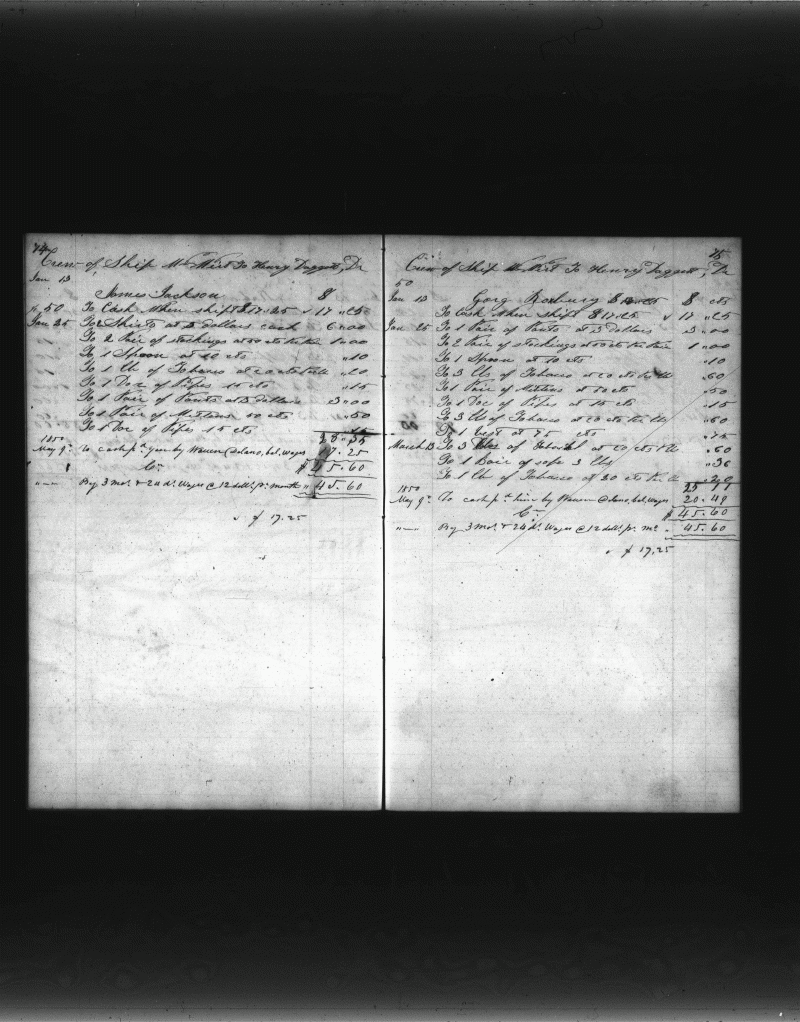 74
Crew of Ship to Henry Daggett, Dr
Jan 13
James Jackson $
50 To Cash When shipt $17.25 17 "25
Jan 25 To 2 Shirts at 3 dollars each 6 "00
To 2 Pair of stockings at 50 cts the 1 "00
To 1 Spoon at 10 cts "10
To 1 lb of Tobacco at 20 cts the lb "20
To 1 Doz of Pipes 15 cts "15
To 1 Pair of Pants at 3 Dollars 3 "00
To 1 Pair of Mittens 50 cts "50
To 1 Doz of Pipes 15 cts "15
1850 28 "35
May 9th To cash pd by Warren Delano, bal. Wages 17.25
Cr. $45.60
" By 3 Mos. & 24 ds. Wages @ 12 dolls pr month " 45.60
$17.25
75
Crew of Ship To Henry Daggett, Dr
50
Jan 13 Gorg Roxbury $ cts
To Cash When shipt $17.25 17 "25
Jan 25 To 1 Pair of Pants at 3 Dollars 3 "00
To 2 Pair of stockings at 50 cts the 1 "00
To 1 Spoon at 10 cts "10
To 3 lbs of Tobacco at 20 cts the lb "60
To 1 Pair of Mittens at 50 cts "50
To 1 Doz of Pipes at 15 cts "15
To 3 lbs of Tobacco at 20 cts the lb "60
To 1 Vest at 75 cts "75
March 13 To 3 of at 20 cts the "60
To 1 of 3 lbs "36
To 1 lb of Tobacco at 20 cts the lb "20
1850
May 9th To cash pd him by Warren Delano, bal. wages 20.49
Cr. $45.60
" By 3 Mos. & 24 ds. Wages @ 12 dolls. pr. mo " 45.60
$17.25